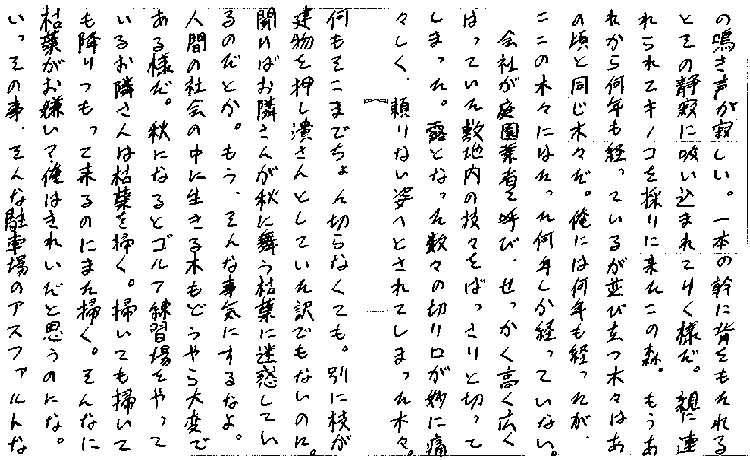 の鳴き声が寂しい。一本の幹に背をもたれる
とその静寂に吸い込まれて行く様だ。親に連
れられてキノコを採りに来たこの森。もうあ
れから何年も経っているが並び立つ木々はあ
の頃と同じ木々だ。俺には何年も経ったが、
ここの木々にはたった何年しか経っていない。
会社が庭園業者を呼び、せっかく高く広く
はっていた敷地内の枝々をばっさりと切って
しまった。露となった数々の切り口が妙に痛
々しく、頼りない姿へとされてしまった木々。
何もそこまでちょん切らなくても。別に枝が
建物を押し潰さんとしていた訳でもないのに。
聞けばお隣さんが秋に舞う枯葉に迷惑してい
るのだとか。もう、そんな事気にするなよ。
人間の社会の中に生きる木もどうやら大変で
ある様だ。秋になるとゴルフ練習場をやって
いるお隣さんは枯葉を掃く。掃いても掃いて
も降りつもって来るのにまた掃く。そんなに
枯葉がお嫌いで俺はきれいだと思うのにな。
いっその事、そんな駐車場のアスファルトな